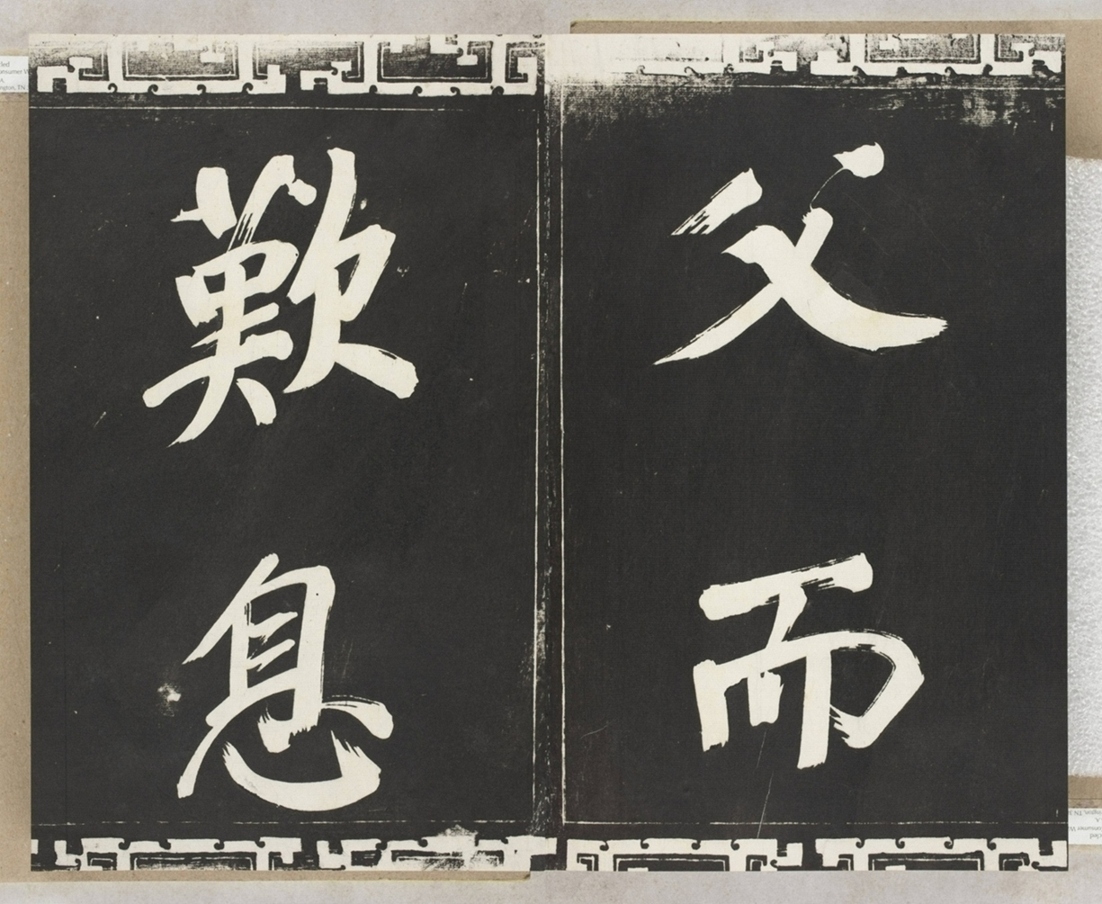 父而
歎息